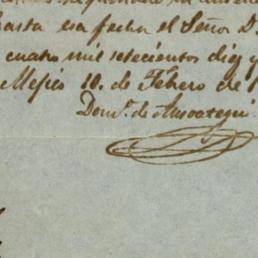 hasta esa fecha el Señor D.
cuatro mil setecientos diez y
Mejico 10. de Febrero de 1
Dom.º de Ansoategui.